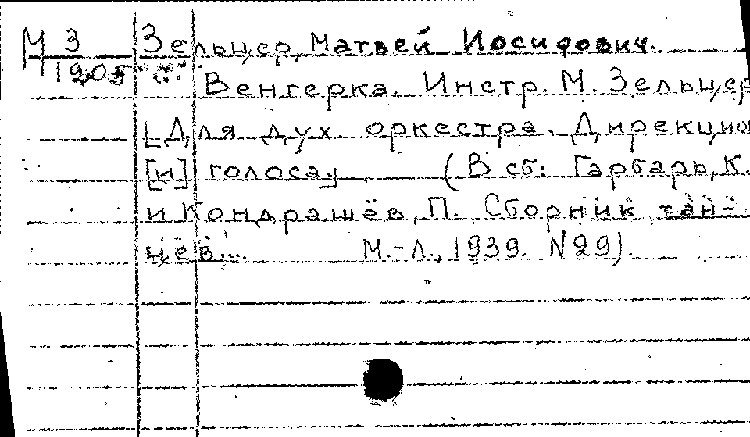 М 3 Зельцер, Матвей Иосифович.
1905
Венгерка. Инстр. М. Зельцер
[Для дух. оркестра. Дирекцион
[и] голоса] (В сб: Гарбарь, К.
и Кондрашёв, П. Сборник тан-
цев... М.-Л., 1939. №29).